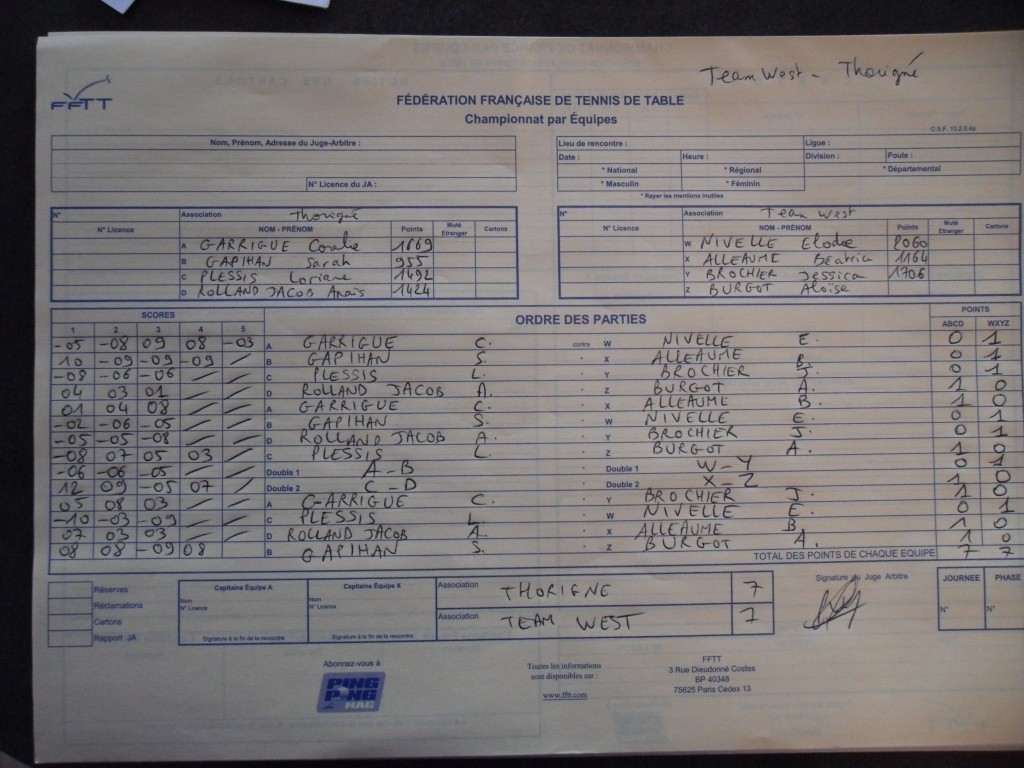 Team West - Thorigné
FFTT
FÉDÉRATION FRANÇAISE DE TENNIS DE TABLE
Championnat par Équipes
C.S.F. 13.2.0.4a
Nom, Prénom, Adresse du Juge-Arbitre :
N° Licence du JA :
Lieu de rencontre : Ligue :
Date : Heure : Division : Poule :
* National * Régional * Départemental
* Masculin * Féminin
* Rayer les mentions inutiles
N° Association Thorigné
N° Licence NOM - PRÉNOM Points Muté Etranger Cartons
A GARRIGUE Coralie 1669
B GAPIHAN Sarah 955
C PLESSIS Loriane 1492
D ROLLAND JACOB Anaïs 1424
N° Association Team West
N° Licence NOM - PRÉNOM Points Muté Etranger Cartons
W NIVELLE Elodie 2060
X ALLEAUME Béatrice 1164
Y BROCHIER Jessica 1706
Z BURGOT Aloïse
SCORES ORDRE DES PARTIES POINTS
1 2 3 4 5 ABCD WXYZ
-05 -08 09 08 -03 A GARRIGUE C. contre W NIVELLE E. 0 1
10 -09 -09 -09 / B GAPIHAN S. " X ALLEAUME B. 0 1
-08 -06 -06 / / C PLESSIS L. " Y BROCHIER J. 0 1
04 03 01 / / D ROLLAND JACOB A. " Z BURGOT A. 1 0
01 04 08 / / A GARRIGUE C. " X ALLEAUME B. 1 0
-02 -06 -05 / / B GAPIHAN S. " W NIVELLE E. 0 1
-05 -05 -08 / / D ROLLAND JACOB A. " Y BROCHIER J. 0 1
-08 07 05 03 / C PLESSIS L. " Z BURGOT A. 1 0
-06 -06 -05 / / Double 1 A-B " Double 1 W-Y 0 1
12 09 -05 07 / Double 2 C-D " Double 2 X-Z 1 0
05 08 03 / / A GARRIGUE C. " Y BROCHIER J. 1 0
-10 -03 -09 / / C PLESSIS L. " W NIVELLE E. 0 1
07 03 03 / / D ROLLAND JACOB A. " X ALLEAUME B. 1 0
08 08 -09 08 B GAPIHAN S. " Z BURGOT A. 1 0
TOTAL DES POINTS DE CHAQUE EQUIPE 7 7
Réserves
Réclamations
Cartons
Rapport JA
Capitaine Équipe A
Nom
N° Licence
Signature à la fin de la rencontre
Capitaine Équipe X
Nom
N° Licence
Signature à la fin de la rencontre
Association THORIGNE 7
Association TEAM WEST 7
Signature du Juge Arbitre
JOURNEE PHASE
N° N°
Abonnez-vous à
PING PONG MAG
Toutes les informations
sont disponibles sur :
www.fftt.com
FFTT
3 Rue Dieudonné Costes
BP 40348
75625 Paris Cedex 13